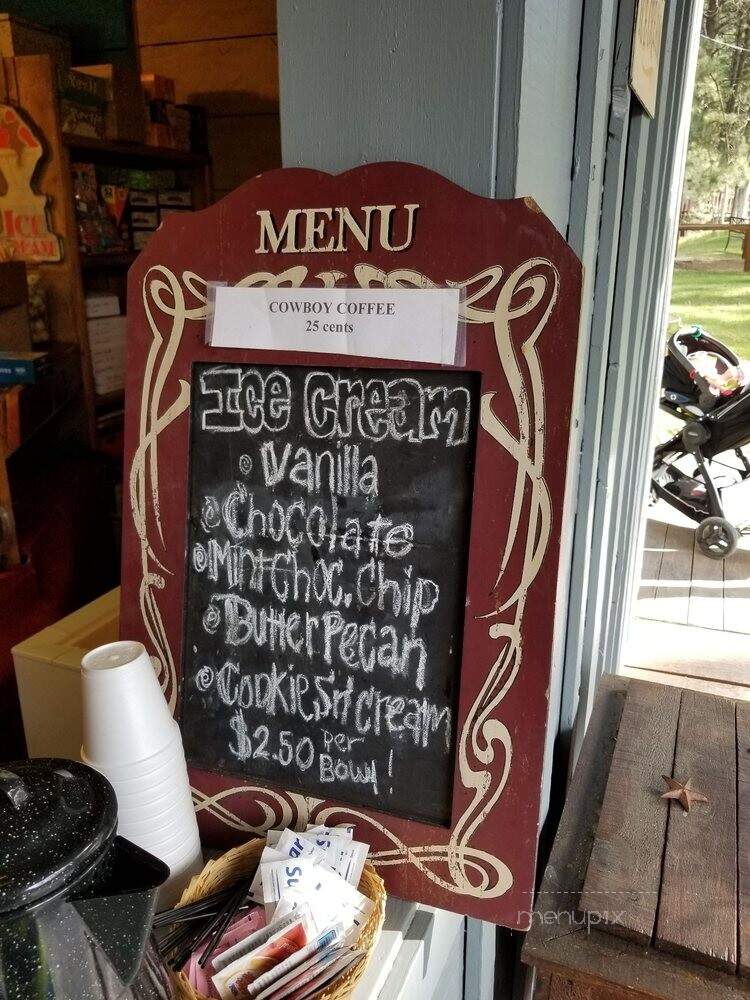 MENU
COWBOY COFFEE
25 cents
Ice Cream
Vanilla
Chocolate
Mint Choc. Chip
Butter Pecan
Cookies n' cream
$2.50 per
Bowl!
ICE
CREAM
menupix